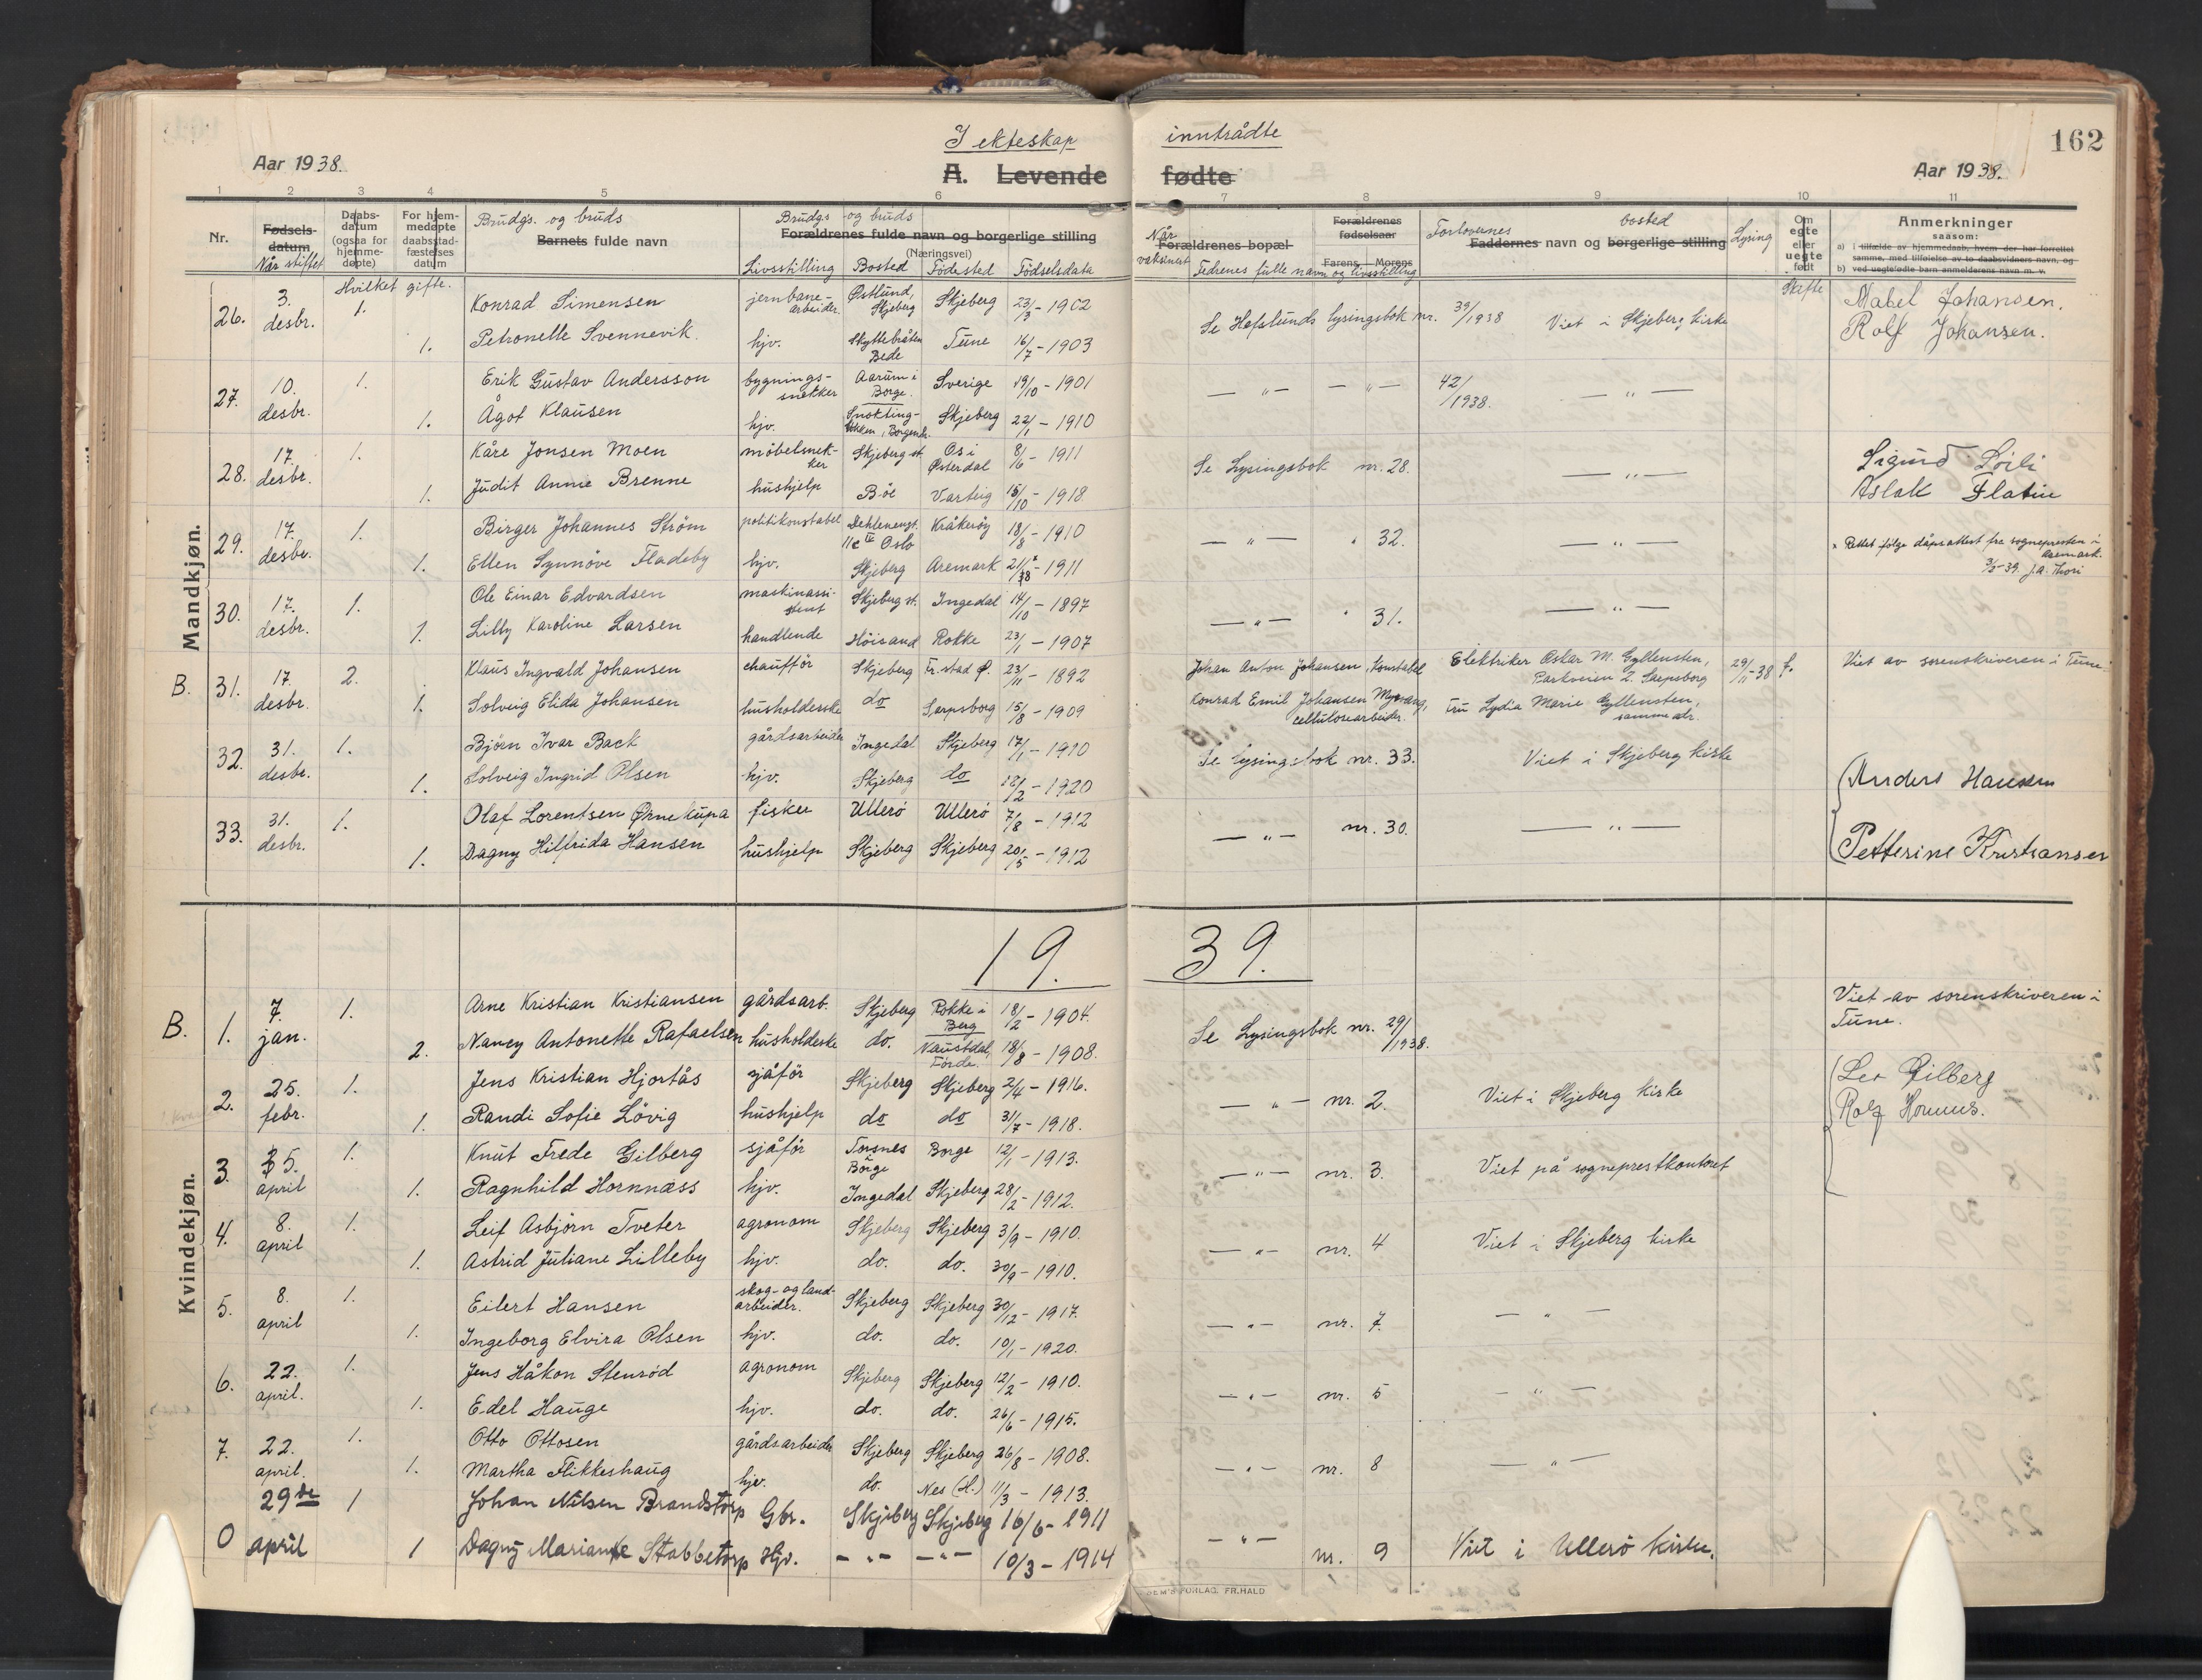 162
I ekteskap inntrådte
Aar 1938.
A. Levende fødte
Aar 1938.
1 2 3 4 5 6 7 8 9 10 11
Nr.
Fødsels-datum
Når stiftet
Daabs-datum (ogsaa for hjemme-døpte)
For hjem-medøpte daabsstad-fæstelses datum
Hvilket gifte.
Brudgs. og bruds
Barnets fulde navn
Brudgs og bruds
Forældrenes fulde navn og borgerlige stilling
(Næringsvei)
Livsstilling Bosted Fødested Fødselsdata
Når vaksinert
Forældrenes bopæl
Forældrenes fødselsaar
Farens Morens
Fedrenes fulle navn og livsstilling
Forlovernes bosted
Faddernes navn og borgerlige stilling
Lysing
Om egte eller uegte født
Skifte
Anmerkninger
saasom:
a) i tilfælde av hjemmedaab, hvem der har forrettet samme, med tilføielse av to daabsvidners navn, og
b) ved uegtefødte barn anmelderens navn m. v.
Mandkjøn.
26. 3. desbr. 1. Konrad Simensen jernbane-arbeider. Østlund, Skjeberg Skjeberg 23/3 - 1902 Se Hafslunds lysingsbok nr. 39/1938 Viet i Skjeberg kirke Mabel Johansen.
1. Petronelle Svennevik. hjv. Skyttebråten Bede Tune 16/7 - 1903 Rolf Johansen.
27. 10. desbr. 1. Erik Gustav Andersson bygnings-snekker Aarum i Borge. Sverige 19/10 - 1901 — " — — " — 42/1938. — " —
1. Ågot Klausen hjv. Skjeberg 22/1 - 1910
28. 17. desbr. 1. Kåre Jonsen Moen möbelsnek-ker Skjeberg st. Os i Østerdal 8/6 - 1911 Se Lysingsbok nr. 28. — " — Sigurd Löili
1. Judit Annie Brenne hushjelp Böe Varteig 15/10 - 1918 Aslak Flatin
29. 17. desbr. 1. Birger Johannes Ström politikonstabel Dehlenengt. 11c IV Oslo Kråkeröy 18/8 - 1910 — " — " 32. — " — x Rettet ifølge dåpsattest fra sognepresten i Aremark.
1. Ellen Synnöve Fladeby hjv. Skjeberg Aremark 21/x - 1911 3/5-39. J.A. Thori
30. 17. desbr. 1. Ole Einar Edvardsen maskinassi-stent Skjeberg st. Ingedal 14/10 - 1897 — " — " 31. — " —
1. Lilly Karoline Larsen handlende Höisand Rokke 23/1 - 1907
B. 31. 17. desbr. 2. Klaus Ingvald Johansen chauffør Skjeberg Fr.stad Ø. 23/11 - 1892 Johan Anton Johansen, konstabel Elektriker Oskar M. Gyllensten, Parkveien 2. Sarpsborg 29/11-38 f. Viet av sorenskriveren i Tune
1. Solveig Elida Johansen husholderske do Sarpsborg 15/8 - 1909 Konrad Emil Johansen Myrvang, cellulosearbeider. Fru Lydia Marie Gyllensten, samme adr.
32. 31. desbr. 1. Björn Ivar Back gårdsarbeider Ingedal Skjeberg 17/1 - 1910 Se lysingsbok nr. 33. Viet i Skjeberg kirke
1. Solveig Ingrid Olsen hjv. Skjeberg do 12/2 - 1920 Anders Hansen
33. 31. desbr. 1. Olaf Lorentsen Ørnekupa fisker Ullerö Ullerö 7/8 - 1912 — " — nr. 30. — " —
1. Dagny Hilfrida Hansen hushjelp Skjeberg Skjeberg 20/5 - 1912 Petterine Kristiansen
19. 39.
Kvindekjøn.
B. 1. 7. jan. 1. Arne Kristian Kristiansen gårdsarb. Skjeberg Rokke i Berg 18/2 - 1904. Se Lysingsbok nr. 29/1938. Viet av sorenskriveren i Tune.
2. Nancy Antonette Rafaelsen husholdeske do. Naustdal, Förde. 18/8 - 1908.
2. 25. febr. 1. Jens Kristian Hjortås sjåför Skjeberg Skjeberg 2/4 - 1916. — " — nr. 2. Viet i Skjeberg kirke Leo Gilberg
1. Randi Sofie Lövig hushjelp do do 31/7 - 1918. Rolf Hornnes.
3. 5. april 1. Knut Frede Gilberg sjåför Torsnes i Borge Borge 12/1 - 1913. — " — nr. 3. Viet på sogneprestkontoret
1. Ragnhild Hornnæss hjv. Ingedal Skjeberg 28/2 - 1912.
4. 8. april 1. Leif Asbjörn Tveter agronom Skjeberg Skjeberg 3/9 - 1910. — " — nr. 4 Viet i Skjeberg kirke
1. Astrid Juliane Lilleby hjv. do. do. 30/9 - 1910.
5. 8. april 1. Eilert Hansen skog- og land-arbeider. Skjeberg Skjeberg 30/12 - 1917. — " — nr. 7. — " —
1. Ingeborg Elvira Olsen hjv. do. do. 10/1 - 1920.
6. 22. april. 1. Jens Håkon Stenröd agronom Skjeberg Skjeberg 12/2 - 1910. — " — nr. 5 — " —
1. Edel Hauge hjv. do. do. 26/6 - 1915.
7. 22. april. 1. Otto Ottosen gårdsarbeider Skjeberg Skjeberg 26/8 - 1908. — " — nr. 8 — " —
1. Martha Flikkeshaug hjv. do. Nes (H.) 11/3 - 1913.
0 29de april 1 Johan Nilsen Brandstorp Gbr. Skjeberg Skjeberg 16/6 - 1911 — " — nr. 9 Viet i Ullerö kirke.
1 Dagny Mariane Stabbetorp Hjv. — " — — " — 10/3 - 1914
FORLAG, FR.HALD